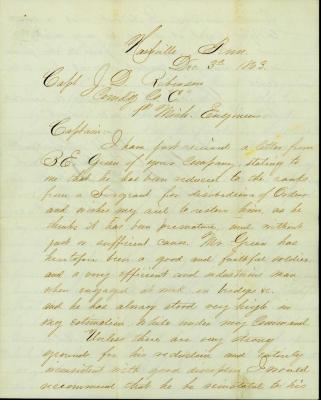 Nashville Tenn.
Dec. 3d 1863.
Capt J. D. Robinson
Comdg Co. "C"
1st Mich. Engineers
Captain
I have just received a letter from
E. Green of your Company, stating to
me that he has been reduced to the ranks
from a Sergeant for disobedience of Orders
and wishes my aid to restore him, as he
thinks it has been premature, and without
just or sufficient cause. Mr. Green has
heretofore been a good and faithful soldier
and a very efficient and industrious man
when engaged at work on bridges &c.
and he has always stood very high in
my estimation while under my Command.
Unless there are very strong
grounds for his reduction and entirely
inconsistent with good discipline I would
recommend that he be reinstated to his